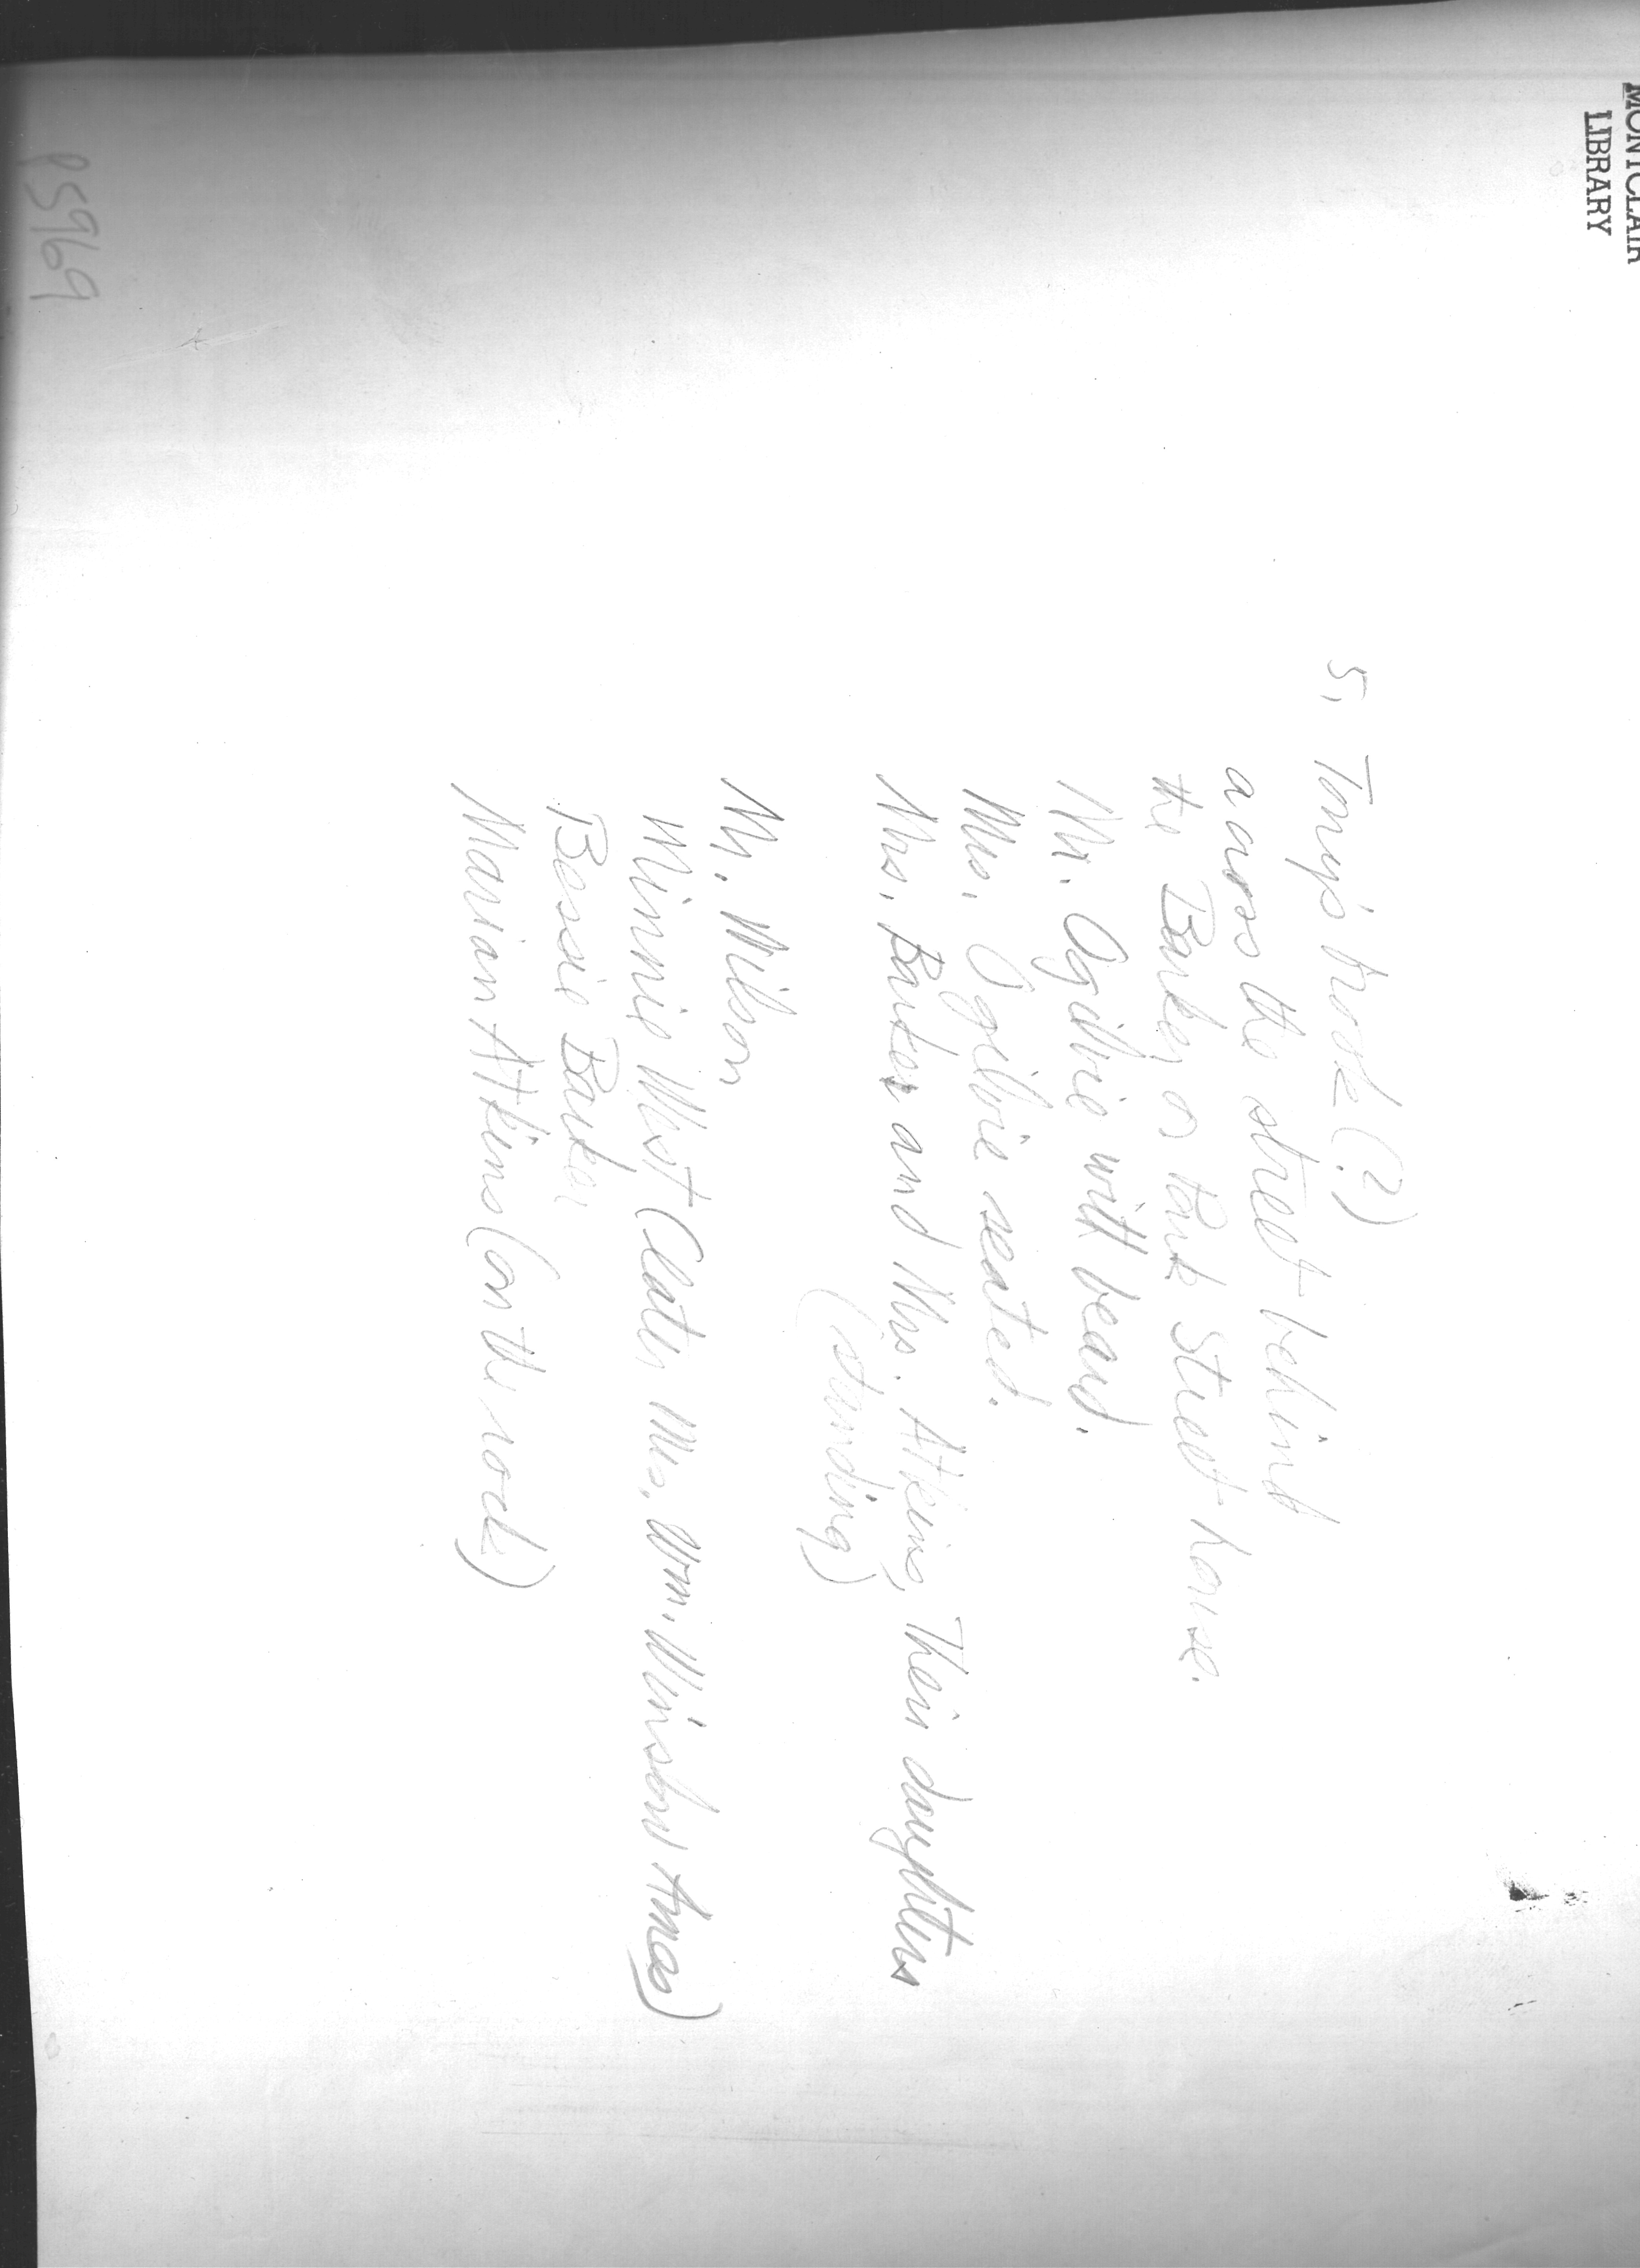 MONTCLAIR
LIBRARY
5. Tony's brook (?)
across the street behind
the Barker's Park Street house.
Mr. Ogilvie with beard.
Mrs. Ogilvie seated.
Mrs. Barker and Mrs. Atkins, their daughters
(standing)
Mr. Wilson
Minnie West (later Mrs. Wm. Winslow Ames)
Bessie Barker
Marian Atkins (on the rock)
P5969